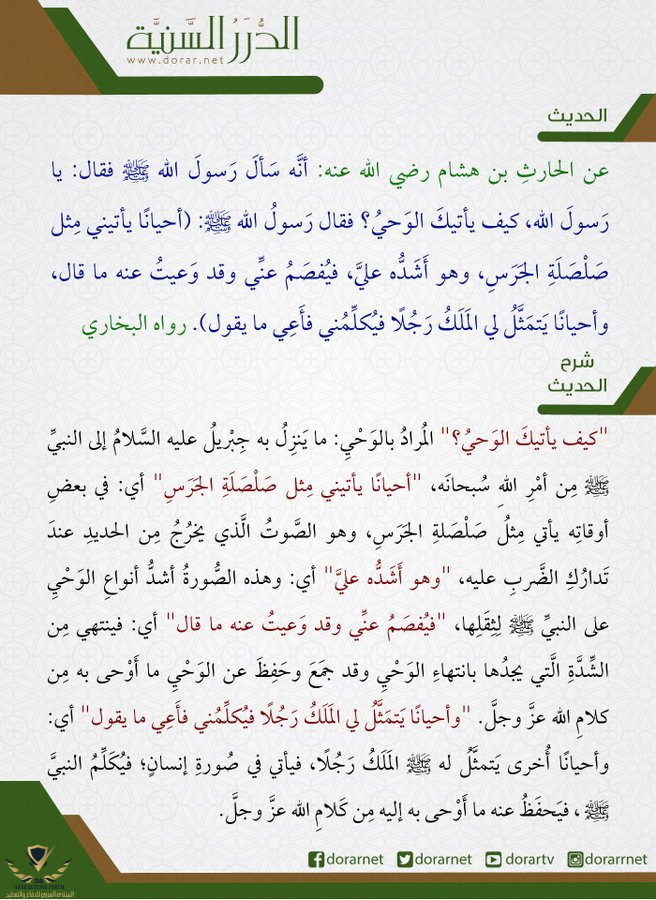 الدُّرَرُ السَّنِيَّة
www.dorar.net
الحديث
عن الحارثِ بن هشام رضي الله عنه: أنَّه سَألَ رَسولَ الله ﷺ فقال: يا
رَسولَ الله، كيف يأتيكَ الوَحيُ؟ فقال رَسولُ الله ﷺ: (أحيانًا يأتيني مِثل
صَلْصَلَةِ الجَرَسِ، وهو أَشَدُّه عليَّ، فيُفصَمُ عنِّي وقد وَعيتُ عنه ما قال،
وأحيانًا يَتمَثَّلُ لي المَلَكُ رَجُلًا فيُكلِّمُني فأَعِي ما يقول). رواه البخاري
شرح
الحديث
"كيف يأتيكَ الوَحيُ؟" المُرادُ بالوَحْيِ: ما يَنزِلُ به جِبْريلُ عليه السَّلامُ إلى النبيِّ
ﷺ مِن أمْرِ اللهِ سُبحانَه، "أحيانًا يأتيني مِثل صَلْصَلَةِ الجَرَسِ" أي: في بعضِ
أوقاتِه يأتي مِثلُ صَلْصَلةِ الجَرَسِ، وهو الصَّوتُ الَّذي يخرُجُ مِن الحديدِ عندَ
تَدارُكِ الضَّربِ عليه، "وهو أَشَدُّه عليَّ" أي: وهذه الصُّورةُ أشدُّ أنواعِ الوَحْيِ
على النبيِّ ﷺ لِثِقَلِها، "فيُفصَمُ عنِّي وقد وَعيتُ عنه ما قال" أي: فينتهي مِن
الشِّدَّةِ الَّتي يجدُها بانتهاءِ الوَحْيِ وقد جمَعَ وحَفِظَ عن الوَحْيِ ما أَوْحى به مِن
كلامِ الله عزَّ وجلَّ. "وأحيانًا يَتمَثَّلُ لي المَلَكُ رَجُلًا فيُكلِّمُني فأَعِي ما يقول" أي:
وأحيانًا أُخرى يَتمثَّلُ له ﷺ المَلَكُ رَجُلًا، فيأتي في صُورةِ إنسانٍ؛ فيُكَلِّمُ النبيَّ
ﷺ، فيَحفَظُ عنه ما أَوْحى به إليه مِن كَلامِ الله عزَّ وجلَّ.
dorarnet dorarnet dorartv dorarrnet
ARAB DEFENSE FORUM
المنتدى العربي للدفاع والتسليح